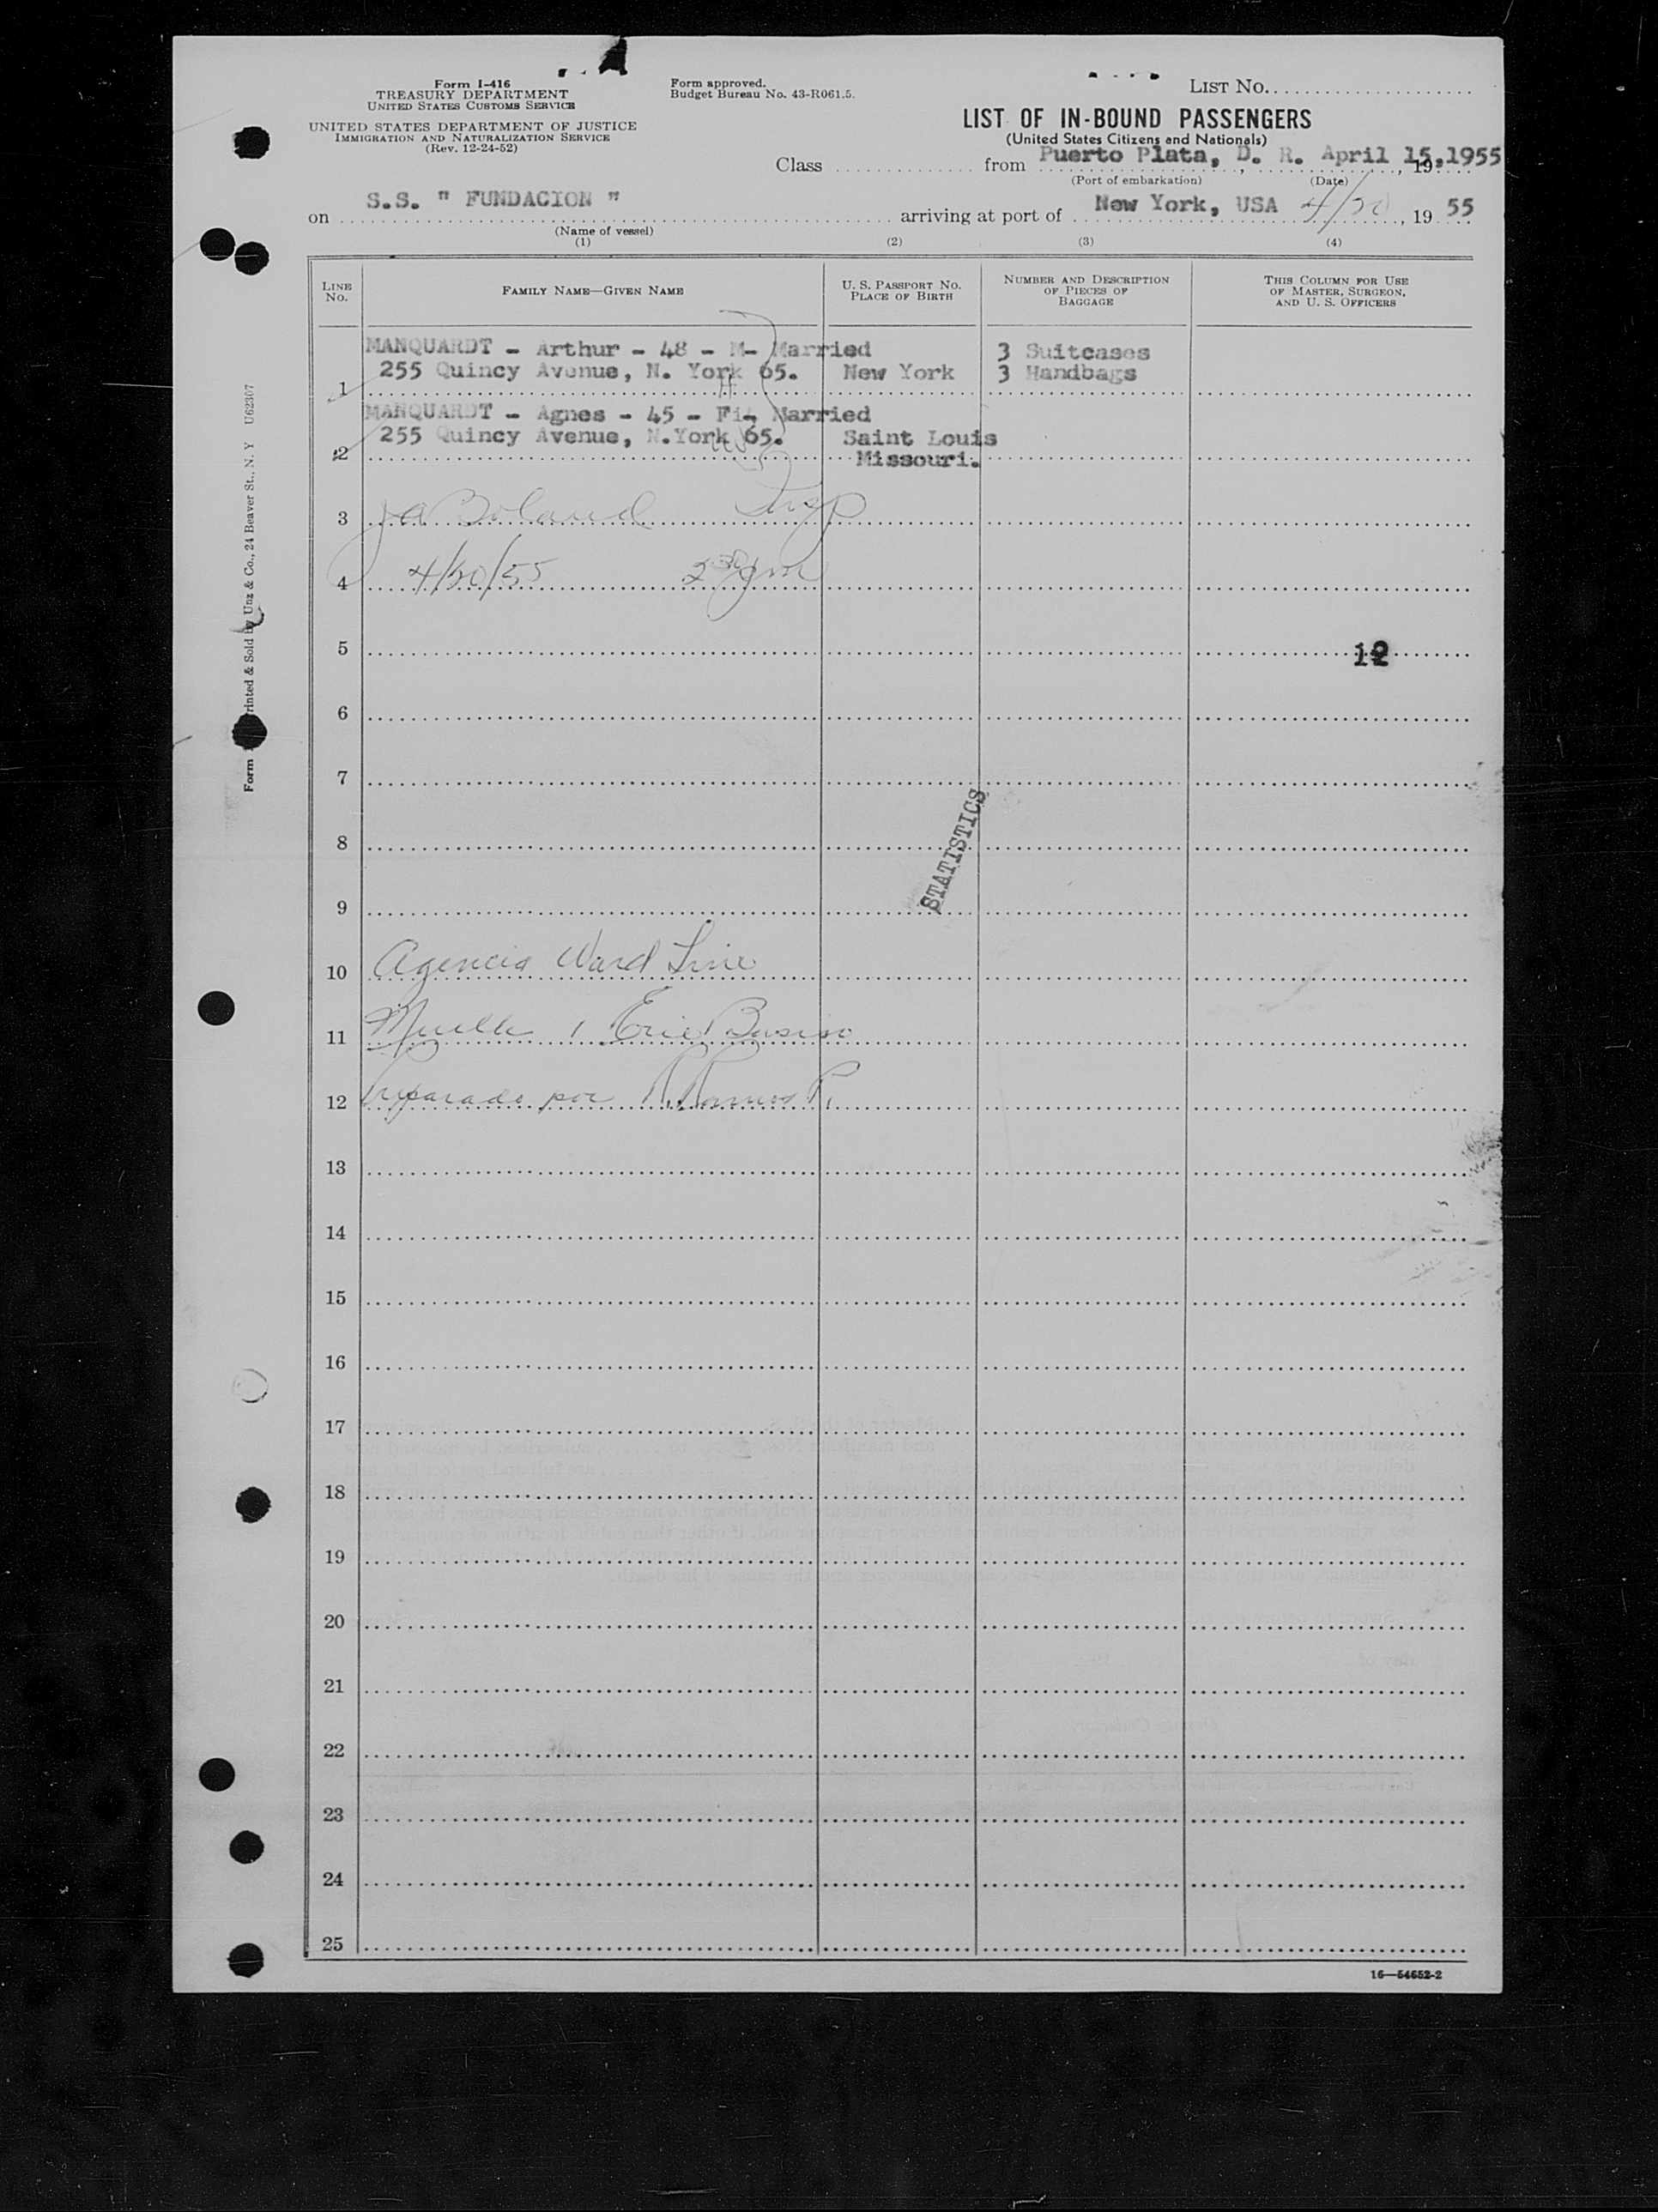 Form I-416
TREASURY DEPARTMENT
UNITED STATES CUSTOMS SERVICE
UNITED STATES DEPARTMENT OF JUSTICE
IMMIGRATION AND NATURALIZATION SERVICE
(Rev. 12-24-52)
Form approved.
Budget Bureau No. 43-R061.5.
LIST NO.
LIST OF IN-BOUND PASSENGERS
(United States Citizens and Nationals)
Class from Puerto Plata, D. R. April 15,1955 , 19
(Port of embarkation) (Date)
on S.S. " FUNDACION " arriving at port of New York, USA 4/20, 19 55
(Name of vessel)
(1) (2) (3) (4)
LINE NO. FAMILY NAME—GIVEN NAME U. S. PASSPORT NO. PLACE OF BIRTH NUMBER AND DESCRIPTION OF PIECES OF BAGGAGE THIS COLUMN FOR USE OF MASTER, SURGEON, AND U. S. OFFICERS
MANQUARDT - Arthur - 48 - M- Married 3 Suitcases
1 255 Quincy Avenue, N. York 65. New York 3 Handbags
MANQUARDT - Agnes - 45 - F- Married
2 255 Quincy Avenue, N.York 65. Saint Louis
Missouri.
3 J A Boland Insp
4 4/20/55 2 30 pm
5 12
6
7
8
STATISTICS
9
10 Agencia Ward Line
11 Muelle, Erie Basin
12 Preparado por R. Ramos P.
13
14
15
16
17
18
19
20
21
22
23
24
25
16—54652-2
Form rinted & Sold by Unz & Co., 24 Beaver St., N. Y U62307